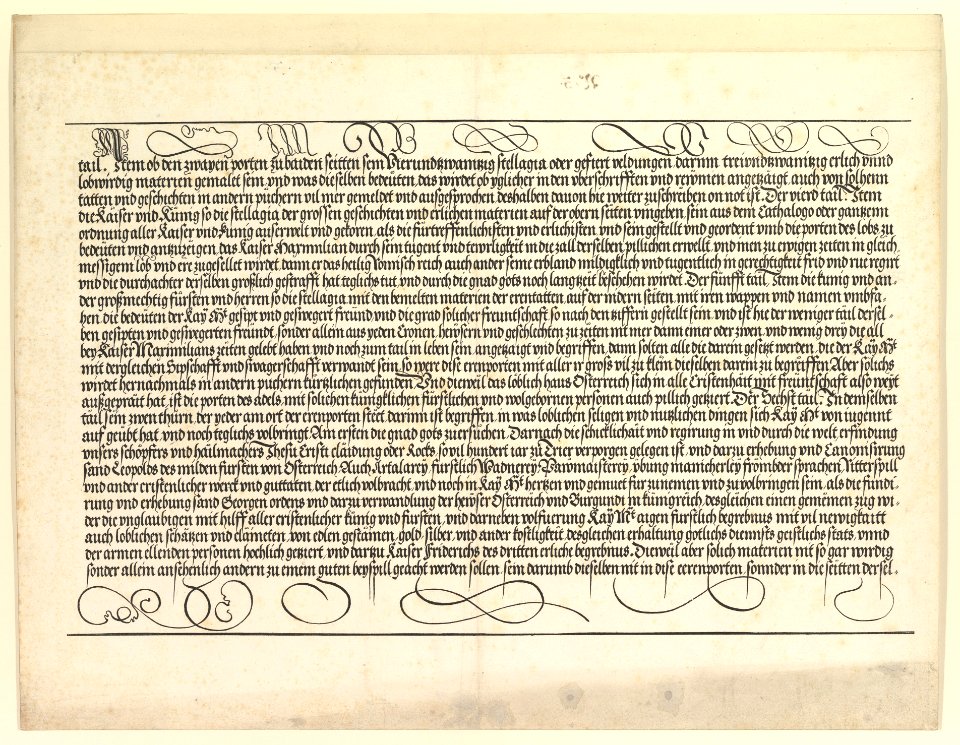 tail. Item ob den zwayen porten zu baiden seitten sein Vierundzwaintzig stellagia oder gefiert veldungen darinn treiundzwaintzig erlich vnnd
lobwirdig materien gemalet sein, vnd was dieselben bedeuten, das wirdet ob yglicher in den vberschrifften und reymen angetzaigt, auch von solhenn
tatten und geschichten in andern puchern vil mer gemeldet und ausgesprochen deshalben dauon hie weitter zuschreiben on not ist. Der vierd tail. Item
die Kaiser vnd Kunig so die stellagia der grossen geschichten und erlichen materien auf der obern seitten vmgeben sein aus dem Cathalogo oder gantzem
ordnung aller Kaiser vnd Kunig auserwelt vnd gekoren, als die fürtreffenlichisten und erlichisten vnd sein gestellt vnd geordent vmb die porten des lobs zu
bedeuten vnd antzuzaigen, das Kaiser Maximilian durch sein tugent vnd tewrligkeit in die zall derselben pillichen erwellt, vnd inen zu ewigen zeiten in gleich
messigem lob vnd ere zugesellet wirdet, dann er das heilig Römisch reich auch ander seine erbland mildigklich vnd tugentlich in gerechtigkeit frid vnd rue regirt
vnd die durchachter derselben größlich gestrafft hat teglichs tut, vnd durch die gnad gots noch langtzeit beschehen wirdet. Der fünfft tail, Item die kunig vnd an-
der großmechtig fürsten vnd herren so die stellagia mit den bemelten materien der erentatten auf der indern seiten mit iren wappen vnd namen vmbfa-
hen, die bedeuten der Kay. Mt. gesipt vnd geswegert freund vnd die grad solicher freuntschaft so nach den ziffern gestellt sein vnd ist hie der weniger tail dersel-
ben gesipten vnd geswegerten freundt, sonder allein aus yeden Cronen, heysern vnd geschlechten zu zeiten nit mer dann einer oder zwen, vnd wenig drey die all
bey Kaiser Maximilians zeiten gelebt haben vnd noch zum tail in leben sein, angetzaigt vnd begriffen, dann solten alle die darein gesetzt werden, die der Kay. Mt.
mit dergleichen Sipschafft vnd swagerschafft verwandt sein, so were dise ernporten mit aller ir gross vil zu klein dieselben darein zu begreiffen Aber solichs
wirdet hernachmals in andern püchern kurtzlichen gefunden Vnd dieweil das loblich haus Osterreich sich in alle Cristenhait mit freuntschaft also weyt
außgeprait hat, ist die porten des adels, mit solichen künigklichen fürstlichen vnd wolgebornen personen auch pillich getziert. Der Sechst tail. In demselben
tail sein zwen thurn, der yeder am ort der erenporten steet, darinn ist begriffen, in was loblichen seligen vnd nutzlichen dingen sich Kay. Mt. von iugennt
auf geübt hat, vnd noch teglichs volbringt. Am ersten die gnad gots zuersuchen. Darnach die schicklichait vnd regirung in vnd durch die welt, erfindung
vnsers schöpffers vnd hailmachers Jhesu Cristi claidung oder Rocks, so vil hundert iar zu Trier verporgen gelegen ist, vnd darzu erhebung vnd Canonisirung
sand Leopolds des milden fürsten von Osterreich, Auch, Artalarey fürstlich Madnerey, Pawmaisterey, vbung manicherley frömbder sprachen, Ritterspill
vnd ander cristenlicher werck vnd guttaten, der etlich volbracht, vnd noch in Kay. Mt. hertzen vnd gemuet für zunemen vnd zu volbringen sein, als die fundi-
rung vnd erhebung sand Georgen ordens vnd darzu verwandlung der heyser Osterreich vnd Burgundi in künigreich, desgleichen einen gemeinen zug wi-
der die vnglaubigen mit hilff aller cristenlicher künig vnd fürsten, vnd darneben volfuerung Kay. Mt. aigen fürstlich begrebnus mit vil newigkaitt
auch loblichen schätzen vnd claineten, von edlen gestainen, gold, silber, vnd ander kostligkeit, desgleichen erhaltung gotlichs diennsts geistlichs stats, vnnd
der armen ellenden personen hochlich getziert, vnd dartzu Kaiser Friderichs des dritten erliche begrebnus. Dieweil aber solich materien nit so gar wirdig
sonder allein ansehenlich andern zu einem guten beyspill geacht werden sollen, sein darumb dieselben nit in dise eerenporten, sonnder in die seitten dersel-